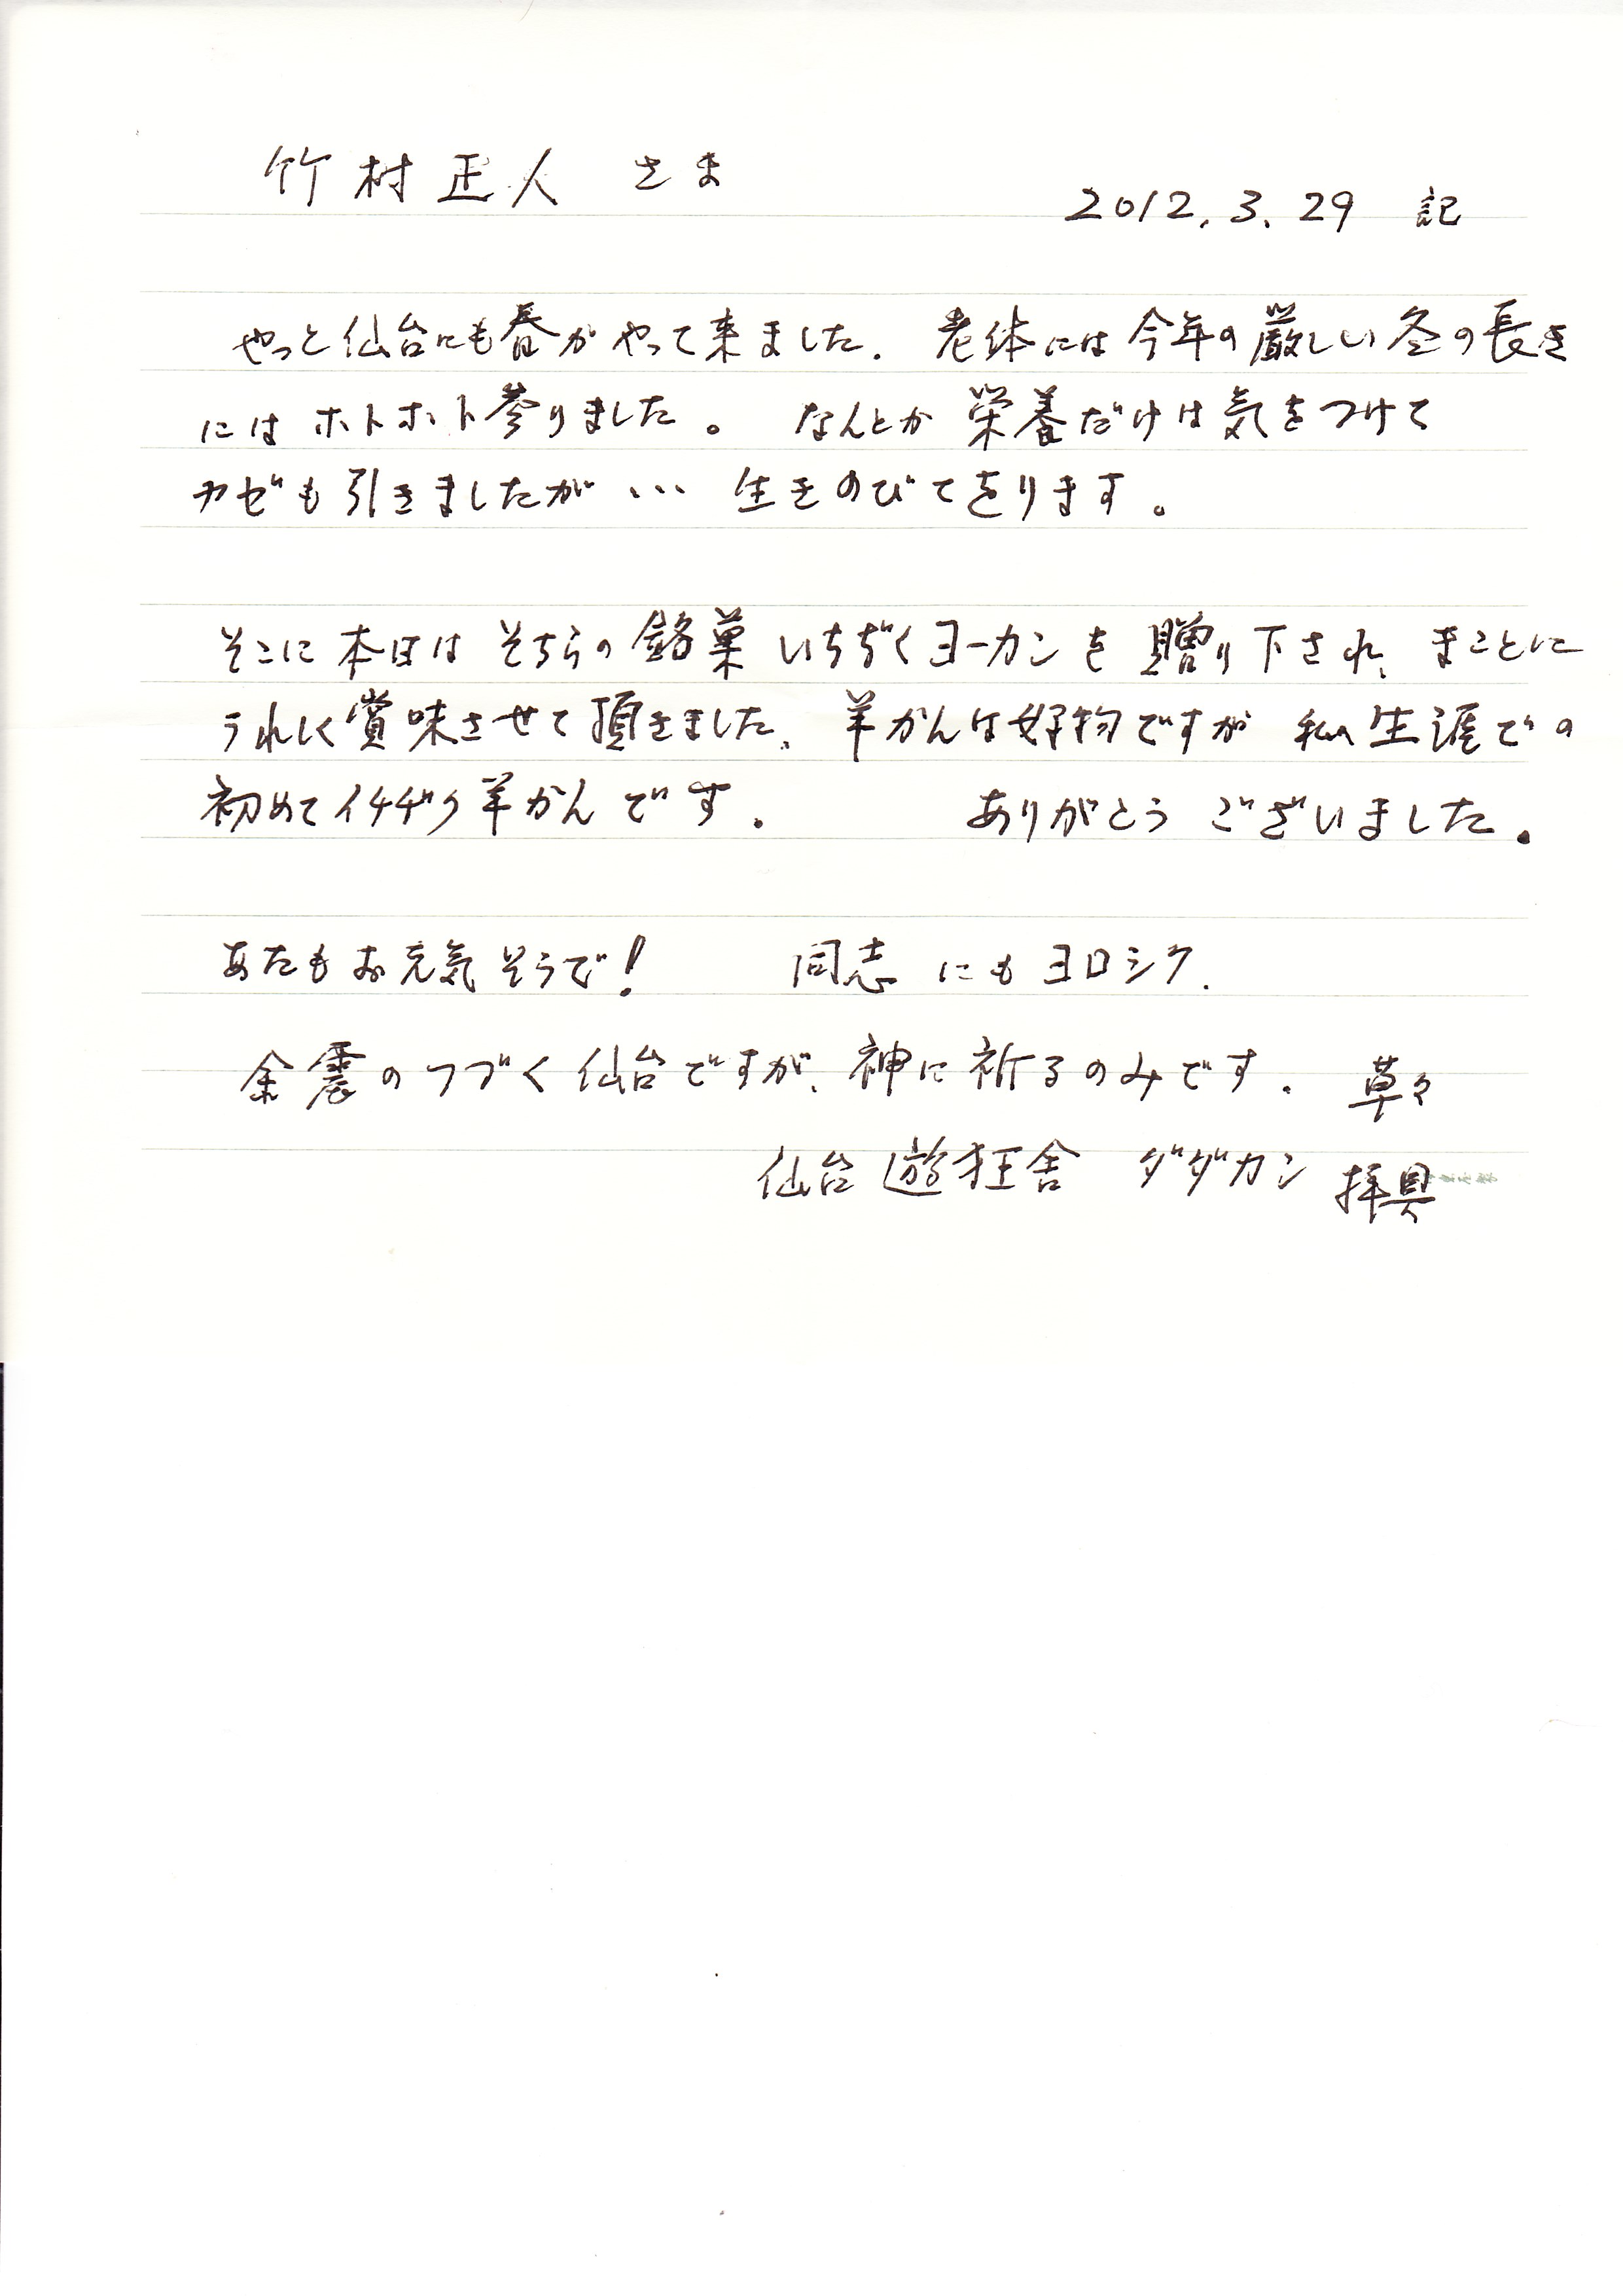 竹村正人 さま
2012.3.29 記
やっと仙台にも春がやって来ました. 老体には今年の厳しい冬の長さ
にはホトホト参りました。 なんとか栄養だけは気をつけて
カゼも引きましたが… 生きのびてをります。
そこに本日はそちらの銘菓いちぢくヨーカンを贈り下され、まことに
うれしく賞味させて頂きました、羊かんは好物ですが 私の生涯での
初めてイチヂク羊かんです。 ありがとう ございました。
あたもお元気そうで! 同志 にもヨロシク.
余震のつづく仙台ですが、神に祈るのみです. 草々
仙台 遊狂舎 ダダカン 拝具